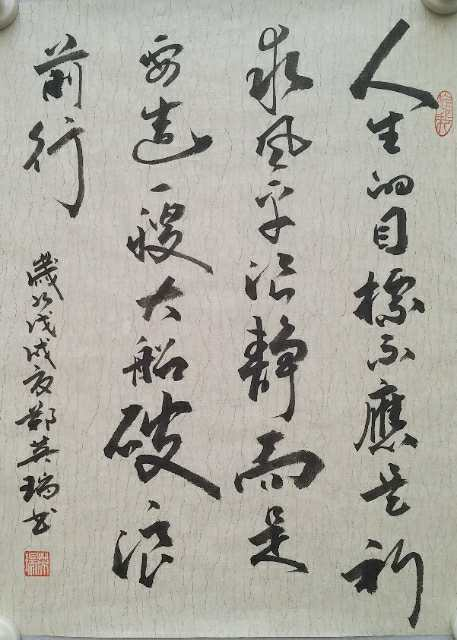 人生的目標不應是祈
求風平浪靜而是
要造一艘大船破浪
前行
歲次戊戌夜鄭英瑞书